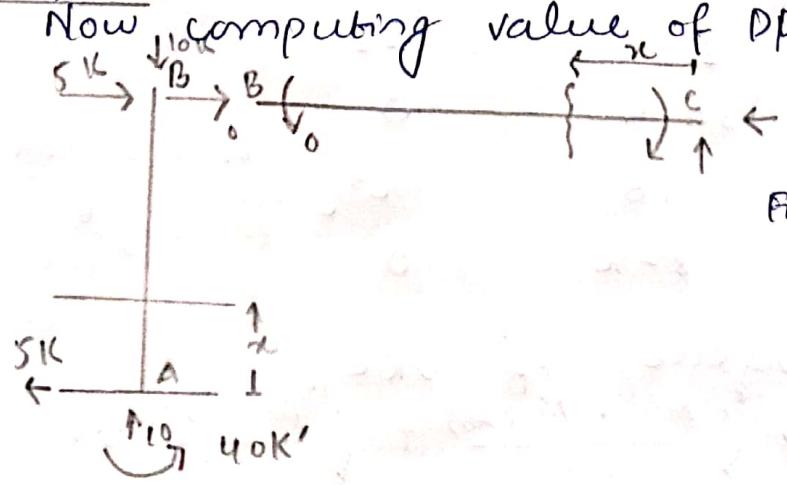 Now computing value of DP
↓10K
5K → B → B x C ←
0 0 ↑
5K
← A x
↑10 40K'